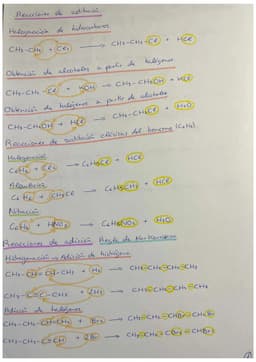 Reacciones de sustitución
Halogenación de hidrocarburos
CH₃-CH₃ + Cl₂ → CH₃-CH₂-Cl + HCl
Obtención de alcoholes a partir de halógenos
CH₃-CH₂-Cl + KOH → CH₃-CH₂OH + KCl
Obtención de halógenos a partir de alcoholes
CH₃-CH₂OH + HCl → CH₃-CH₂Cl + H₂O
Reacciones de sustitución electrófila del benceno (C₆H₆)
Halogenación
C₆H₆ + Cl₂ → C₆H₅Cl + HCl
Alquilación
C₆H₆ + CH₃Cl → C₆H₅CH₃ + HCl
Nitración
C₆H₆ + HNO₃ → C₆H₅NO₂ + H₂O
Reacciones de adición Regla de Markovnikov
Hidrogenación → Adición de hidrógeno
CH₃-CH=CH-CH₃ + H₂ → CH₃-CH₂-CH₂-CH₃
CH₃-C≡C-CH₃ + 2H₂ → CH₃-CH₂-CH₂-CH₃
Adición de halógenos
CH₃-CH₂-CH=CH₂ + Br₂ → CH₃-CH₂-CHBr-CH₂Br
CH₃-CH₂-C≡CH + 2Br₂ → CH₃-CH₂-CBr₂-CHBr₂